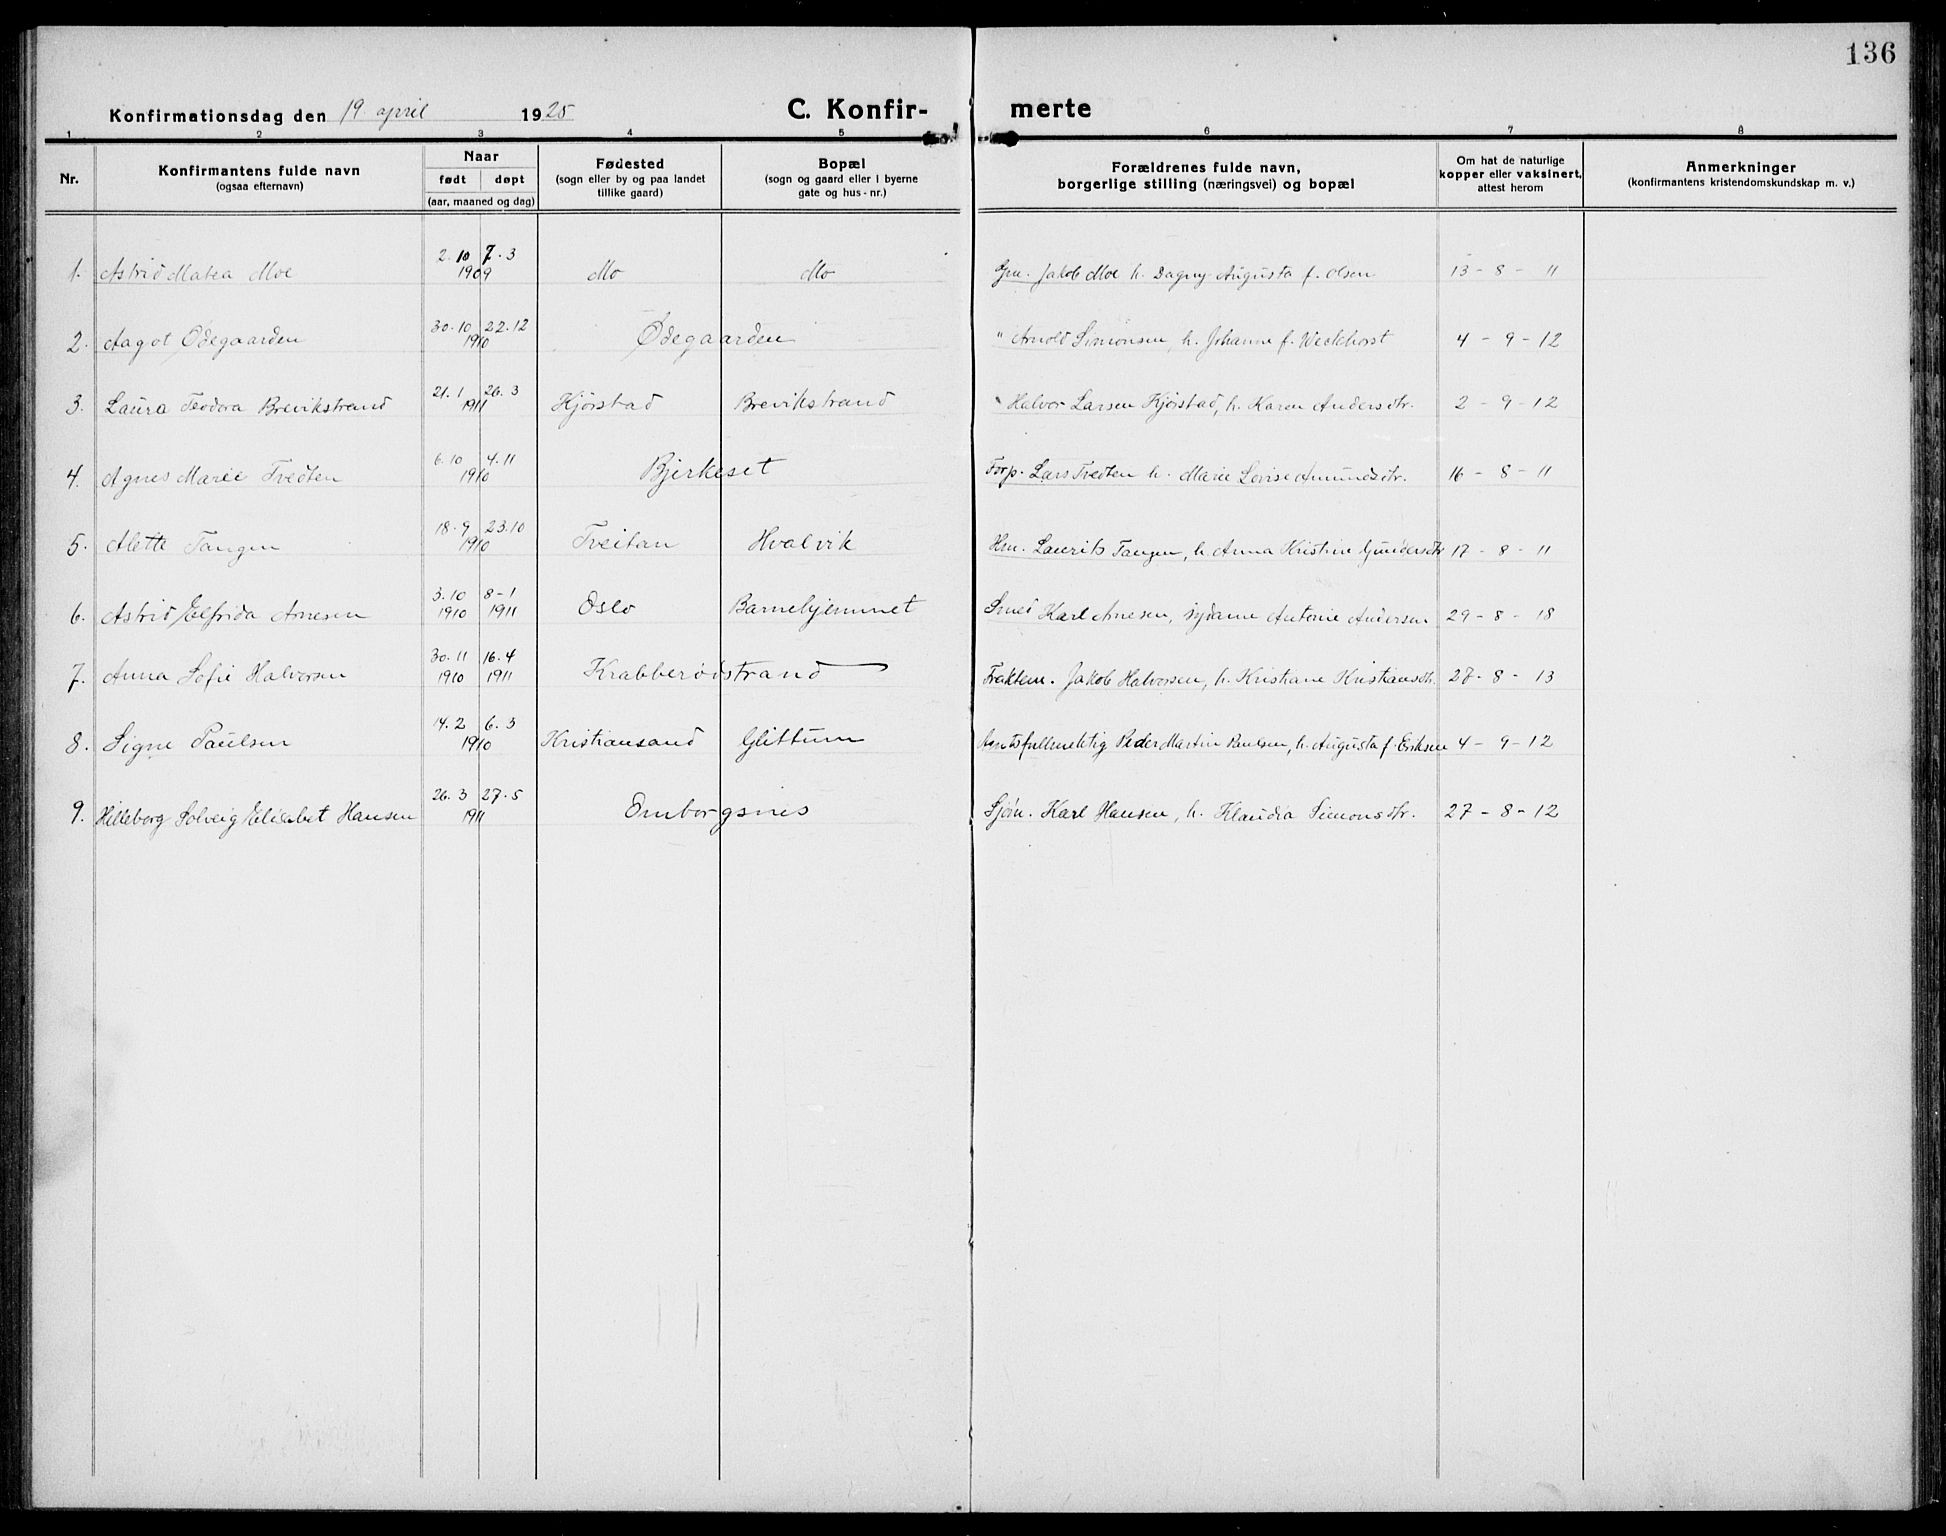 136
Konfirmationsdag den 19. april 1925 C. Konfir- merte
1 2 3 4 5 6 7 8
Nr. Konfirmantens fulde navn (ogsaa efternavn) Naar født døpt (aar, maaned og dag) Fødested (sogn eller by og paa landet tillike gaard) Bopæl (sogn og gaard eller i byerne gate og hus-nr.) Forældrenes fulde navn, borgerlige stilling (næringsvei) og bopæl Om hat de naturlige kopper eller vaksinert, attest herom Anmerkninger (konfirmantens kristendomskundskap m. v.)
1. Astrid Matea Moe 2. 10 7. 3 1909 Mo Mo Gm. Jakob Moe h. Dagny Augusta f. Olsen 13 - 8 - 11
2. Aagot Ødegaarden 30. 10 22. 12 1910 Ødegaarden " Arnold Simonsen, h. Johanne f. Weckhorst 4 - 9 - 12
3. Laura Teodora Brevikstrand 21. 1 26. 3 1911 Hjørstad Brevikstrand " Halvor Larsen Kjørstad, h. Karen Andersdtr. 2 - 9 - 12
4. Agnes Marie Tvedten 6. 10 4. 11 1910 Bjerkeset Forp. Lars Tvedten h. Marie Lovise Amundsdtr. 16 - 8 - 11
5. Alette Tangen 18. 9 23. 10 1910 Tveitan Hvalvik Hm. Laurits Tangen, h. Anna Kristine Gundersdtr 17 - 8 - 11
6. Astrid Elfrida Arnesen 3. 10 1910 8 - 1 1911 Oslo Barnehjemmet Smed Karl Arnesen, sydame Antonie Andersen 29 - 8 - 18
7. Anna Sofie Halvorsen 30. 11 1910 16. 4 1911 Krabberødstrand Fraktem. Jakob Halvorsen, h. Kristiane Kristiansdtr. 27 - 8 - 13
8. Signe Paulsen 14. 2 6. 3 1910 Kristiansand Glittum Amtsfullmektig Peder Martin Paulsen, h. Augusta f. Eriksen 4 - 9 - 12
9. Hilleborg Solveig Elisabet Hansen 26. 3 27. 5 1911 Omborgsnes Sjøm. Karl Hansen, h. Klaudia Simonsdtr. 27 - 8 - 12